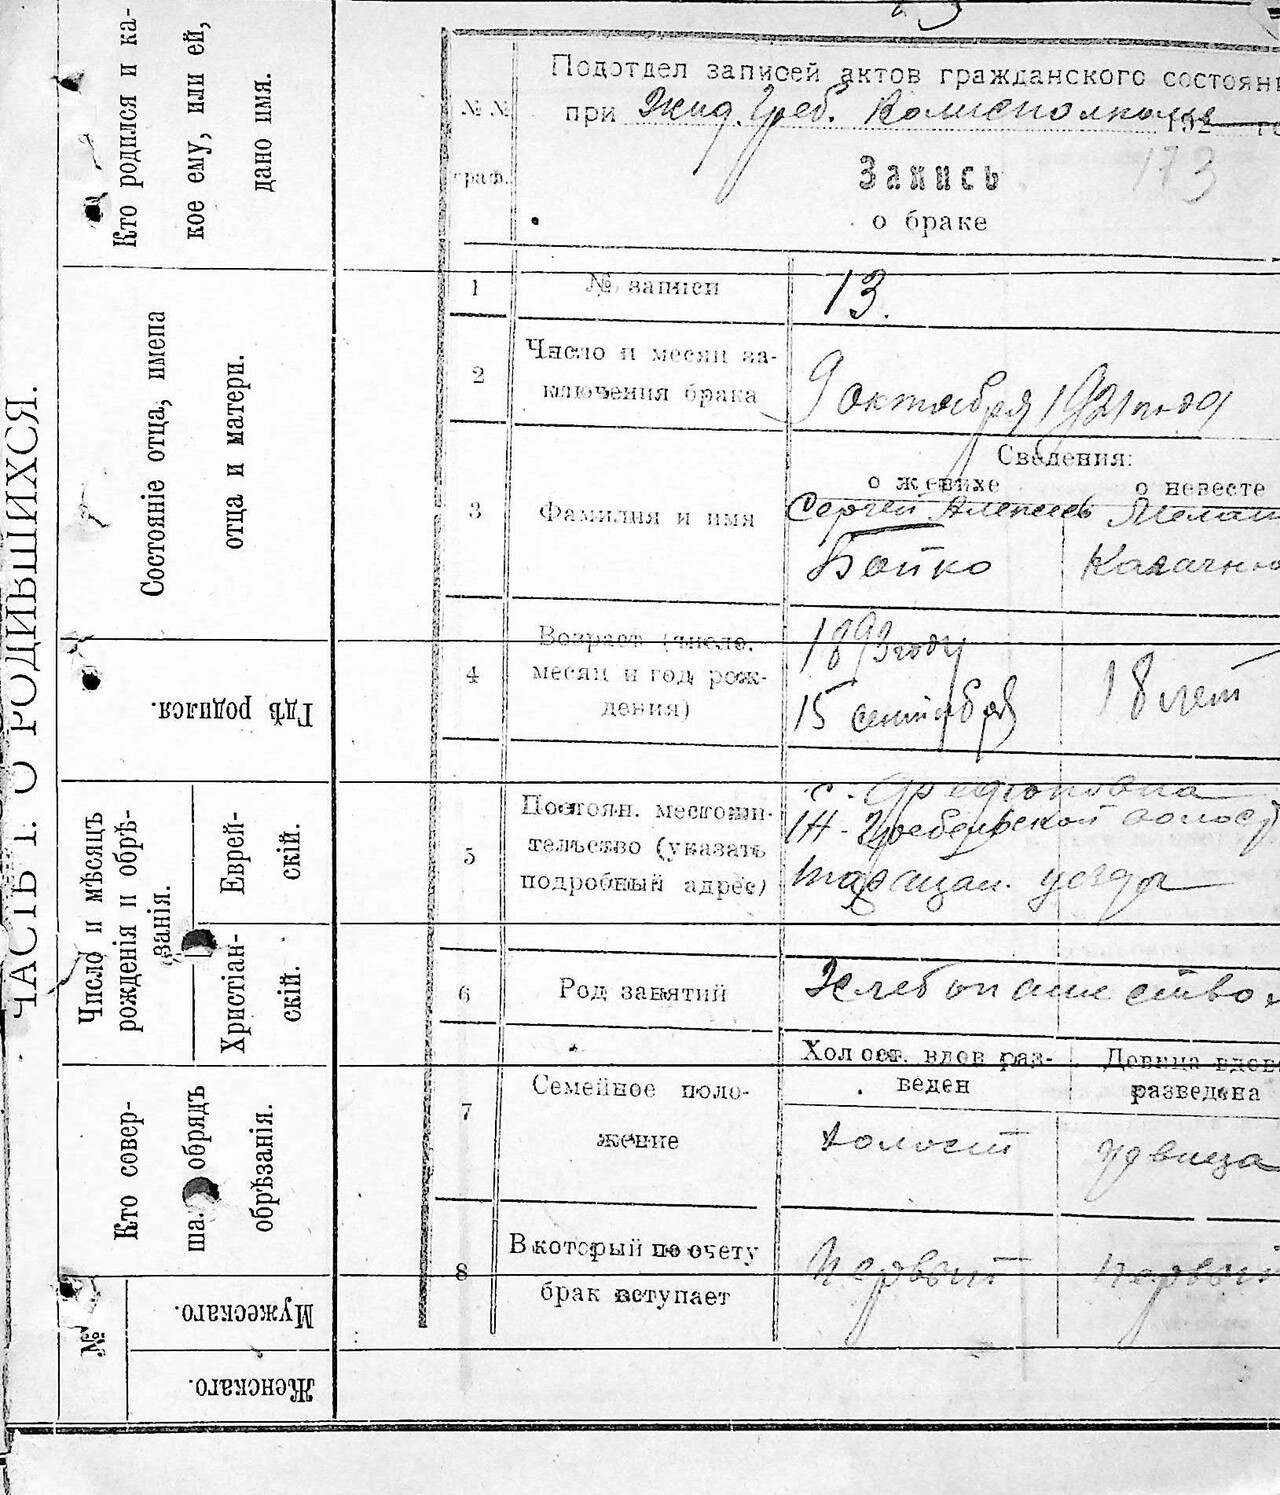 ЧАСТЬ I. О РОДИВШИХСЯ.
Кто родился и ка-
кое ему, или ей,
дано имя.
Состояніе отца, имена
отца и матери.
Гдѣ родился.
Число и мѣсяцъ
рожденія и обрѣ-
занія.
Еврей-
скій.
Христіан-
скій.
Кто совер-
ша. обрядъ
обрѣзанія.
№
Мужескаго.
Женскаго.
Подотдел записей актов гражданского состояни
при Жид. Греб. Волисполкоме 192 го
№ №
граф.
Запись
173
о браке
1 № записи 13.
2 Число и месяц за-
ключения брака
9 октября 1921 года
Сведения:
о женихе о невесте
3 Фамилия и имя
Сергей Алексеев
Бойко
4 Возраст (число,
месяц и год рож-
дения)
1893 году
15 сентября
18 лет
5 Постоян. местожи-
тельство (указать
подробный адрес)
с.
Ж-Гребельской волост
Таращан. уезда
6 Род занятий Хлебопашество
7 Семейное поло-
жение
Холост. вдов раз-
веден
Девица вдов
разведена
холост
девица
8 В который по счету
брак вступает
Первый первый